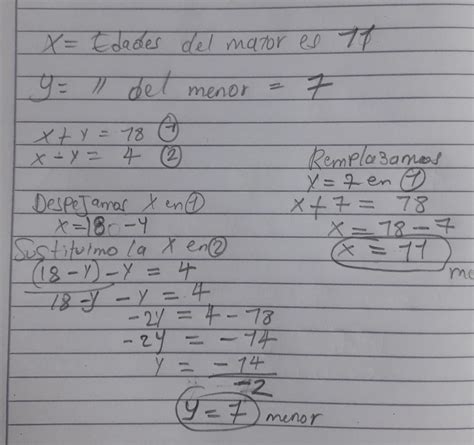 X = Edades del mayor es 11
y = // del menor = 7
x + y = 18 ①
x - y = 4 ②
Despejamos X en ①
x = 18 - y
Sustituimo la X en ②
(18 - y) - y = 4
18 - y - y = 4
-2y = 4 - 18
-2y = -14
y = -14
-2
y = 7 menor
Remplazamos
y = 7 en ①
x + 7 = 18
x = 18 - 7
x = 11